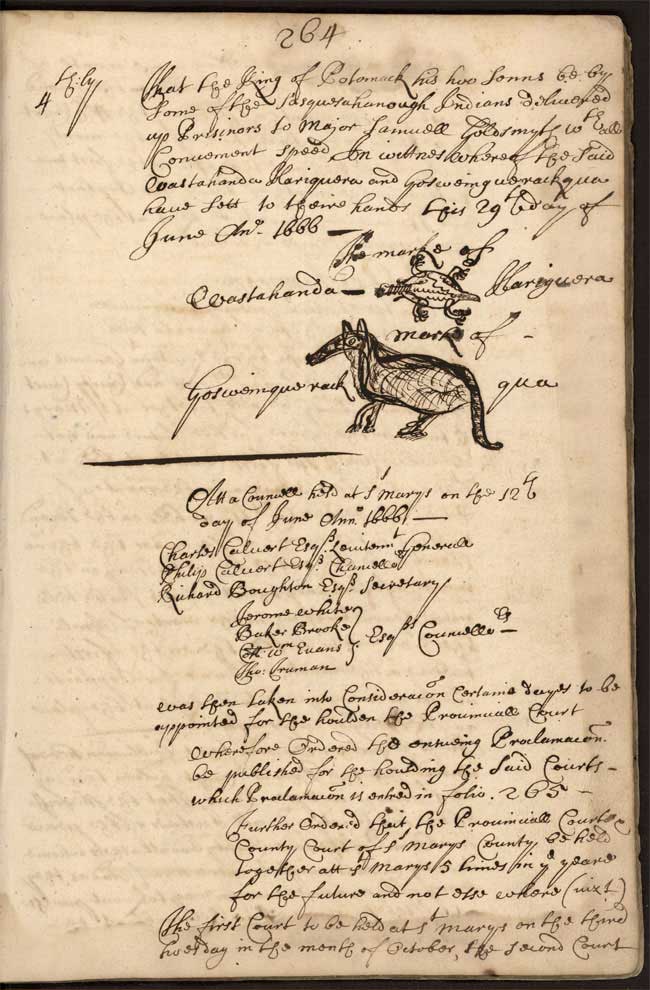 264
4th:ly That the King of Potomack his two Sonns be by
Some of the Sasquesahanough Indians delivered
up Prisinors to Major Samuell Goldsmyth wth all
Convenient speed In wittnes whereof the said
Wastahanda Hariquera and Gosweinquerackqua
have sett to theire hands this 29th day of
June Ano. 1666
The marke of
Wastahanda Hariquera
marke of
Gosweinquerack qua
Att a Councell held at St Marys on the 12th
day of June Anno. 1666
Charles Calvert Esqr. Leivtennt Generall
Philip Calvert Esqr. Chancellor
Richard Boughton Esqr. Secretary
Jerome White
Baker Brooke
Coll: Wm Evans Esqrs Councellors
Tho: Truman
was then taken into Consideracon Certaine dayes to be
appointed for the houlden the Provinciall Court
Wherefore Ordered the ensueing Proclamacon.
be published for the houlding the said Courts
which Proclamacon is entred in folio. 265
Further Ordered that the Provinciall Court &
County Court of St Marys County be held
together att St Marys 5 times in ye yeare
for the future and not else where (vizt)
The first Court to be held at St Marys on the third
tuesday in the month of October, the second Court